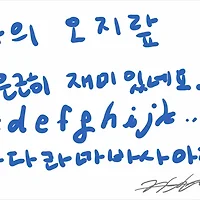 의 오지랖
은근히 재미있네요.
defghijk..
다라마바사아